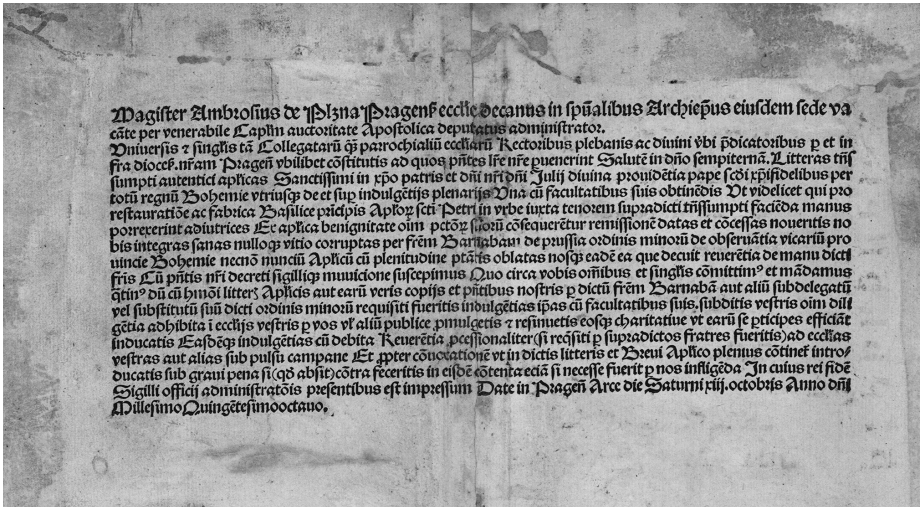 Magister Ambrosius de Plzna Pragenẜ eccl̄ie Decanus in sp̄ualibus Archiep̄us eiusdem sede va
cāte per venerabile Capl̄m auctoritate Apostolica deputatus administrator.
Vniuersis ⁊ singl̄is tā Collegatarū qꝫ parrochialiū eccl̄iarū Rectoribus plebanis ac diuini v̄bi p̄dicatoribus ꝑ et in
fra dioceẜ. nr̄am Pragen̄ vbilibet cōstitutis ad quos pn̄tes lr̄e nr̄e puenerint Salutē in dn̄o sempiternā. Litteras trn̄s
sumpti autentici apl̄icas Sanctissimi in xp̄o patris et dn̄i nr̄i dn̄i Julij diuina prouidētia pape scd̄i xp̄ifidelibus per
totū regnū Bohemie vtriusqꝫ de et suꝑ indulgētijs plenarijs Vna cū facultatibus suis obtinēdis Vt videlicet qui pro
restauratiōe ac fabrica Basilice pr̄icipis Apl̄oꝝ scti Petri in vrbe iuxta tenorem supradicti trn̄ssumpti faciēda manus
porrexerint adiutrices Ex apl̄ica benignitate oim̄ pctōꝝ suorū cōsequerētur remissionē datas et cōcessas noueritis no
bis integras sanas nulloqꝫ vitio corruptas per frēm Barnabam de prussia ordinis minorū de obseruātia vicariū pro
uincie Bohemie necnō nunciū Apl̄icū cū plenitudine ptātis oblatas nosqꝫ eadē ea que decuit reuerētia de manu dicti
fr̄is Cū pn̄tis nr̄i decreti sigilliqꝫ muuicione suscepimus Quo circa vobis om̄ibus et singl̄is cōmittimꝰ et mādamus
q̄tinꝰ dū cū hmōi litterꝭ Apl̄icis aut earū veris copijs et pn̄tibus nostris ꝑ dictū frēm Barnabā aut aliū subdelegatū
vel substitutū suū dicti ordinis minorū requisiti fueritis indulgētias ip̄as cū facultatibus suis. subditis vestris oim̄ dili
gētia adhibita ī eccl̄ijs vestris ꝑ vos vl̄ aliū publice ꝓmulgetis ⁊ resinuetis eosqꝫ charitatiue vt earū se ꝑticipes efficiāt
inducatis Easdēqꝫ indulgētias cū debita Reuerētia ꝓcessionaliter (si reqs̄iti ꝑ supradictos fratres fueritis) ad eccl̄ias
vestras aut alias sub pulsu campane Et ꝓpter cōuocationē vt in dictis litteris et Breui Apl̄ico plenius cōtinet̄ intro-
ducatis sub graui pena si (qd̄ absit) cōtra feceritis in eisdē cōtenta eciā si necesse fuerit ꝑ nos infligēda In cuius rei fidē
Sigilli officij administratōis presentibus est impressum Date in Pragen̄ Arce die Saturni xiii. octobris Anno dn̄i
Millesimo Quingētesimooctauo.